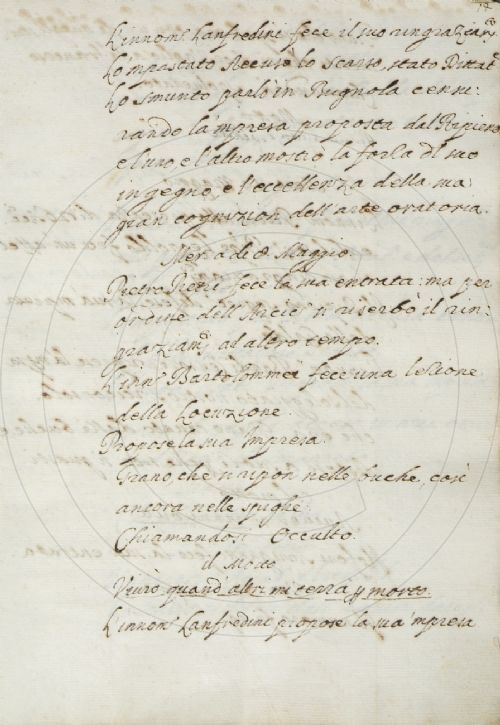 L'innom.º Lanfredini fece il suo ringraziam.º
Lo'mpastato Accusò lo Scarso, stato Dittat.e
Lo Smunto parlò in Bugnola censu:
rando la'mpresa proposta dal Ripieno
e l'uno e l'altro mostrò la forza di suo
ingegno e l'eccellenza della sua
gran cognizion dell'arte oratoria.
di 8 Maggio
Pietro fece la sua entrata: ma per
ordine dell'Arcic.º si riserbò il rin:
graziam.º ad altro tempo.
L'inn.º Bartolommei fece una lezione
della Locuzione.
Propose la sua Impresa.
Grano che nelle buche, così
ancora nelle spighe
Chiamandosi Occulto.
il Motto
Vivrò quand'altri mi terrà p morto.
L'innom.º Lanfredini propose la sua'mpresa